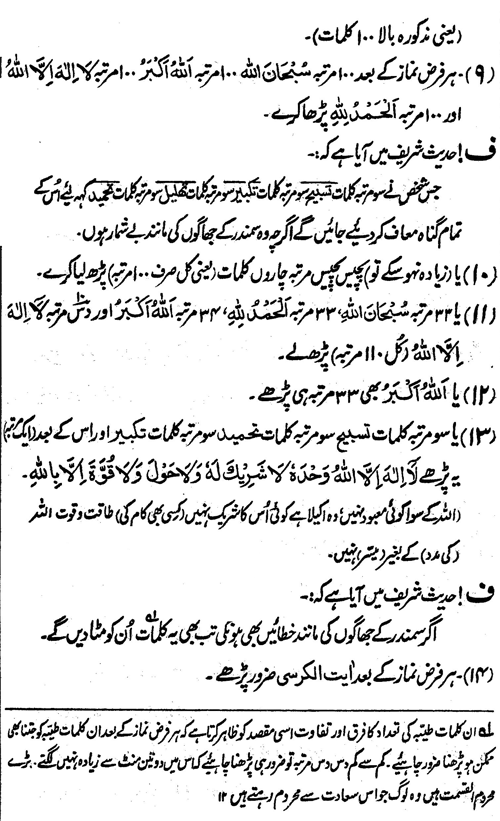 (یعنی مذکورہ بالا ۱۰۰ کلمات)۔
(۹)۔ ہر فرض نماز کے بعد ۱۰۰ مرتبہ سُبْحَانَ اللّٰہ ۱۰۰ مرتبہ اَللّٰہُ اَکْبَرُ ۱۰۰ مرتبہ لَا اِلٰہَ اِلَّا اللّٰہُ
اور ۱۰۰ مرتبہ اَلْحَمْدُ لِلّٰہِ پڑھا کرے۔
ف! حدیث شریف میں آیا ہے کہ:۔
جس شخص نے سو مرتبہ کلمات تسبیح سو مرتبہ کلمات تکبیر سو مرتبہ کلمات تھلیل سو مرتبہ کلمات تحمید کہہ لیے اُس کے
تمام گناہ معاف کر دیئے جائیں گے اگرچہ وہ سمندر کے جھاگوں کی مانند بے شمار ہوں۔
(۱۰) یا (زیادہ نہ ہو سکے تو) پچیس پچیس مرتبہ چاروں کلمات (یعنی کل صرف ۱۰۰ مرتبہ) پڑھ لیا کرے۔
(۱۱) یا ۳۳ مرتبہ سُبْحَانَ اللّٰہِ، ۳۳ مرتبہ اَلْحَمْدُ لِلّٰہِ، ۳۴ مرتبہ اَللّٰہُ اَکْبَرُ اور دس مرتبہ لَا اِلٰہَ
اِلَّا اللّٰہُ (کُل ۱۱۰ مرتبہ) پڑھ لے۔
(۱۲) یا اَللّٰہُ اَکْبَرُ بھی ۳۳ مرتبہ ہی پڑھے۔
(۱۳) یا سو مرتبہ کلمات تسبیح سو مرتبہ کلمات تحمید سو مرتبہ کلمات تکبیر اور اس کے بعد (ایک مرتبہ)
یہ پڑھے لَا اِلٰہَ اِلَّا اللّٰہُ وَحْدَہٗ لَا شَرِیْكَ لَهٗ وَلَا حَوْلَ وَلَا قُوَّةَ اِلَّا بِاللّٰہِ۔
(اللہ کے سوا کوئی معبود نہیں وہ اکیلا ہے کوئی اُس کا شریک نہیں (کسی بھی کام کی) طاقت و قوت اللہ
(کی مدد) کے بغیر (میسر) نہیں۔
ف! حدیث شریف میں آیا ہے کہ:۔
اگر سمندر کے جھاگوں کی مانند خطائیں بھی ہونگی تب بھی یہ کلمات اُن کو مٹا دیں گے۔
(۱۴)۔ ہر فرض نماز کے بعد اٰیت الکرسی ضرور پڑھے۔
لہ ان کلمات طیّبہ کی تعداد کا فرق اور تفاوت اسی مقصد کو ظاہر کرتا ہے کہ ہر فرض نماز کے بعد ان کلمات طیّبہ کو جتنا بھی
ممکن ہو پڑھنا ضرور چاہیئے۔ کم سے کم دس دس مرتبہ تو ضرور ہی پڑھنا چاہیئے کہ اس میں دو تین منٹ سے زیادہ نہیں لگتے۔ بڑے
محروم القسمت ہیں وہ لوگ جو اس سعادت سے محروم رہتے ہیں ۱۲